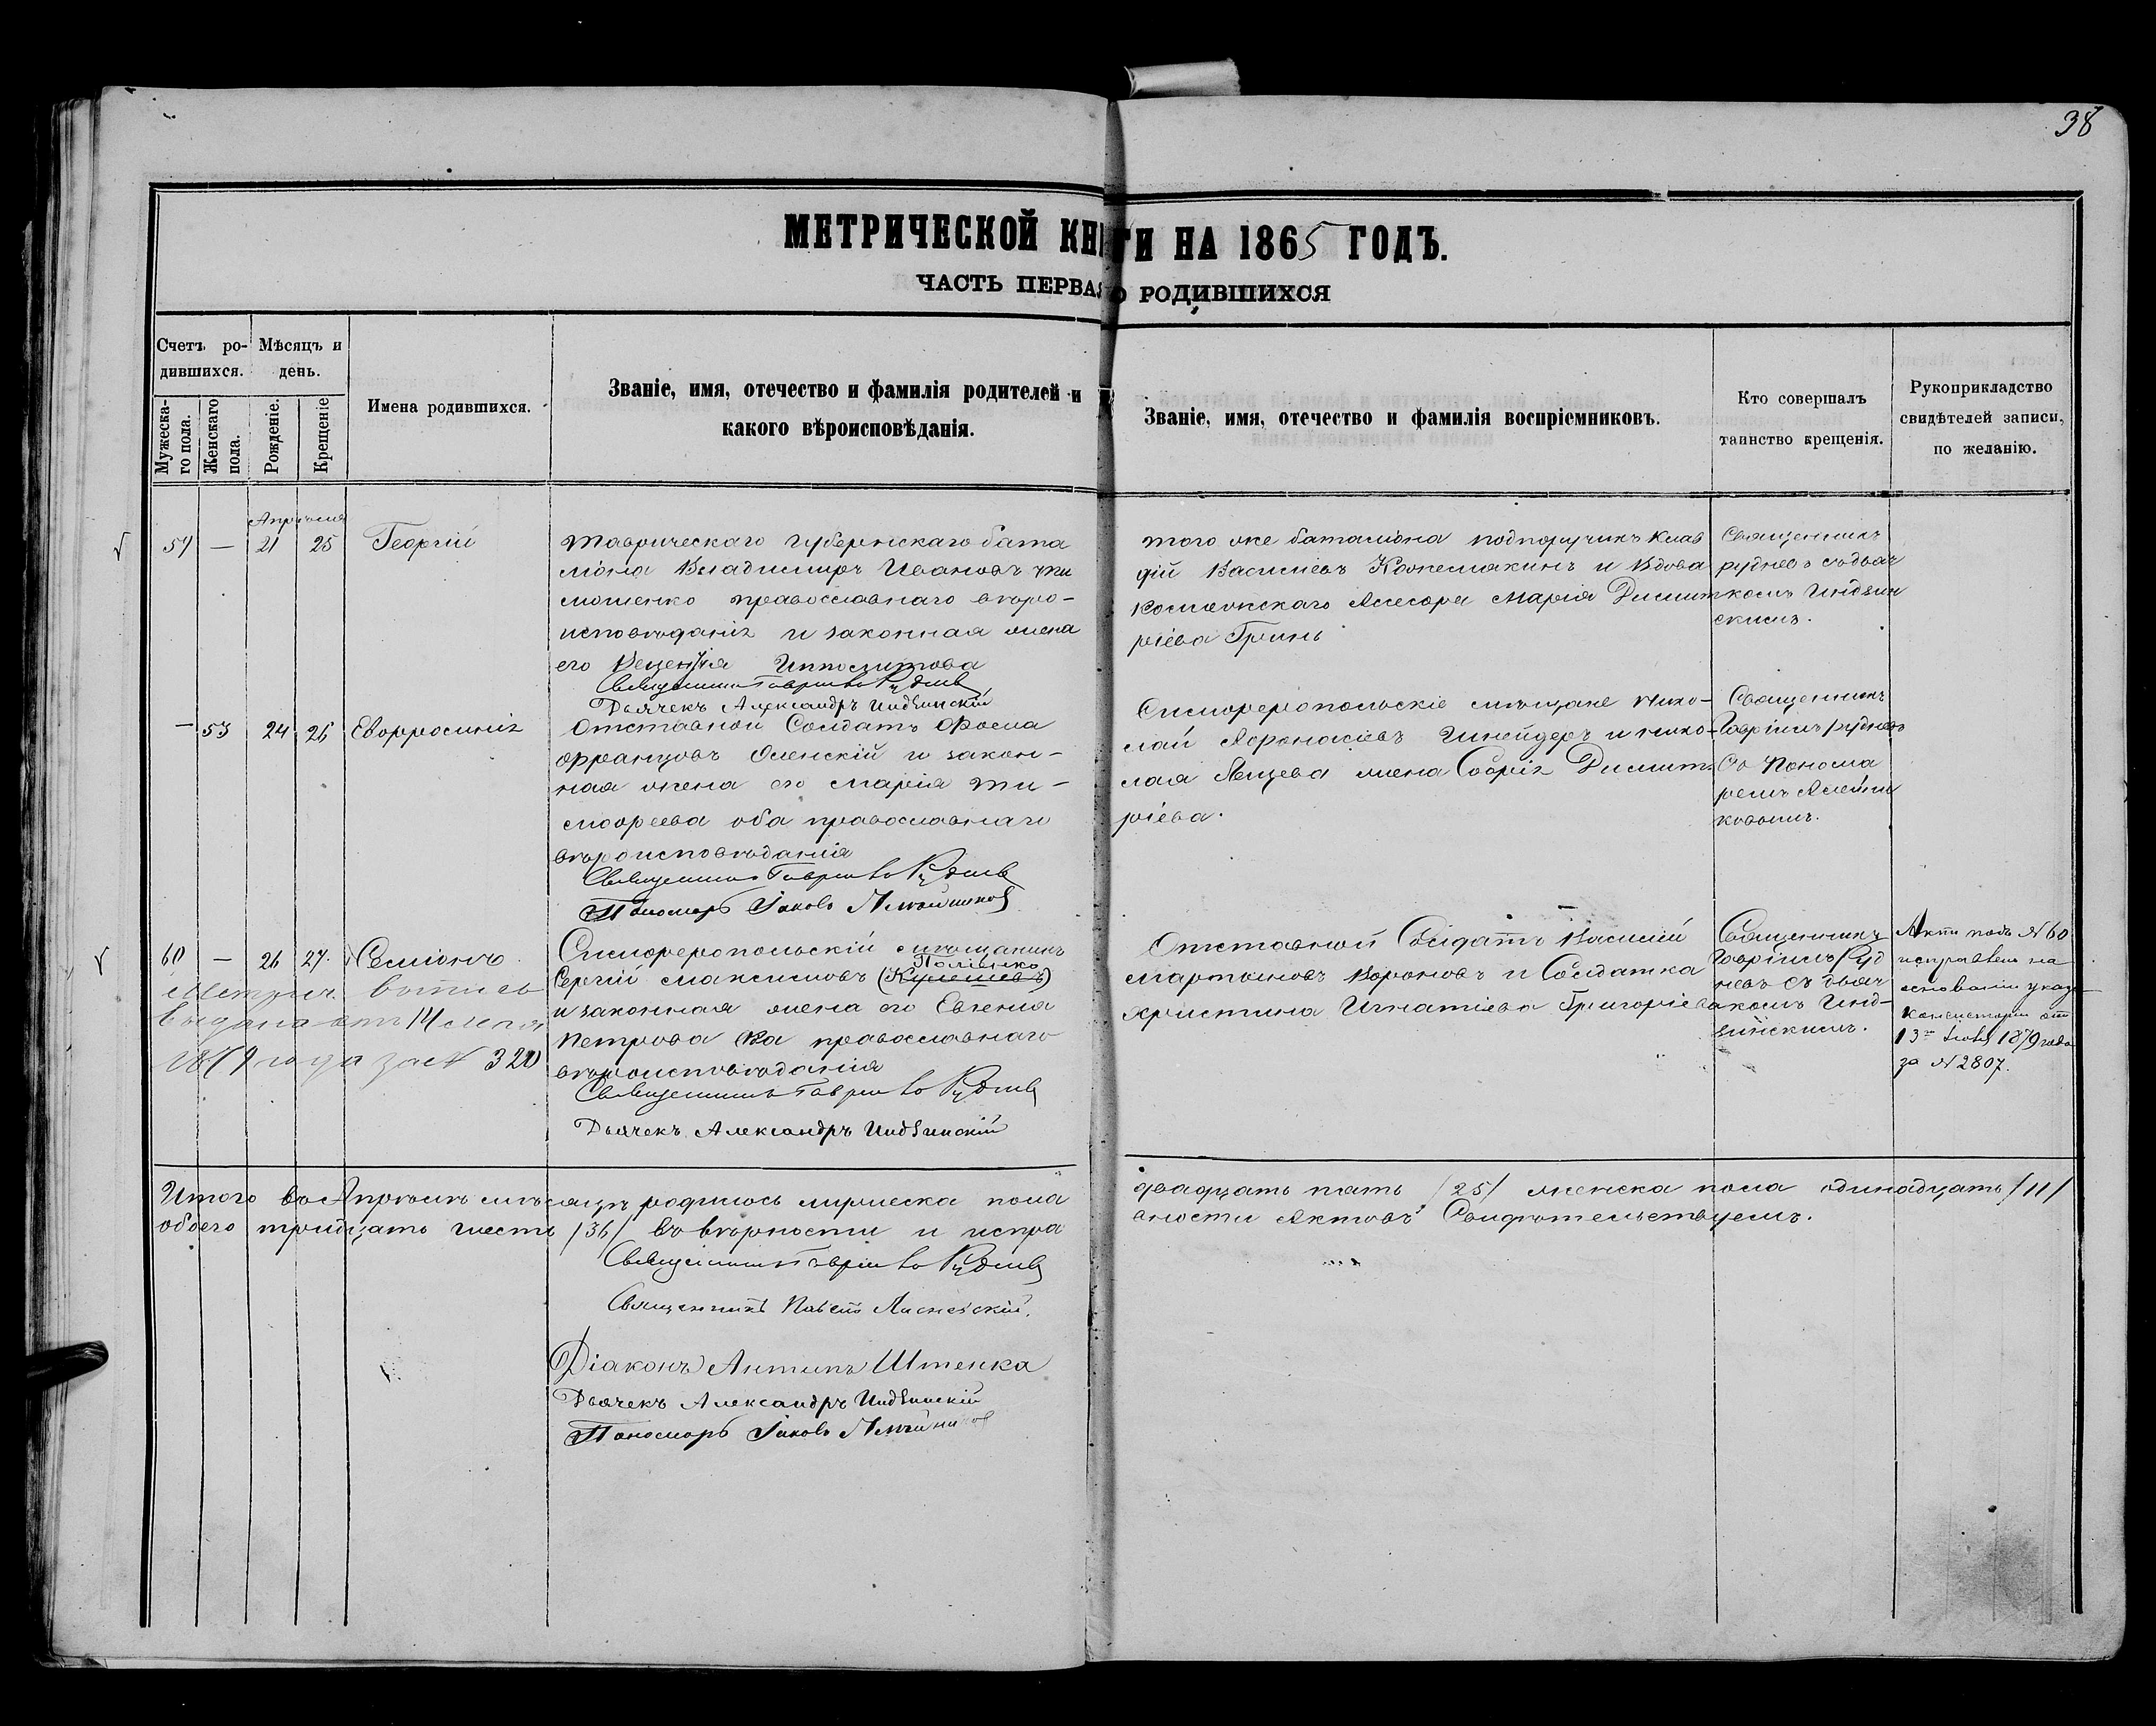 38
МЕТРИЧЕСКОЙ КНИГИ НА 1865 ГОДЪ.
ЧАСТЬ ПЕРВАЯ О РОДИВШИХСЯ
Счетъ ро-
дившихся.
Мѣсяцъ и
день.
Мужеска-
го пола.
Женскаго
пола.
Рожденіе.
Крещеніе
Имена родившихся.
Званіе, имя, отечество и фамилія родителей и
какого вѣроисповѣданія.
Званіе, имя, отечество и фамилія воспріемниковъ.
Кто совершалъ
таинство крещенія.
Рукоприкладство
свидѣтелей записи,
по желанію.
Апрѣля
— 21 25 Георгій
Таврическаго губернскаго бата
ліона Владимиръ Ивановъ
православнаго вѣро-
исповѣданія и законная жена
его Ипполитова
Священникъ Гавріилъ Рудневъ
Дьячекъ Александръ Индзинскій
того же баталіона подпоручикъ Клав
дій Васильевъ и вдова
Ассесора Марія Димит
ріева Гринь
Священникъ
Рудневъ съ дьяч
комъ Индзин
скимъ.
— 53 24 26 Евфросинія
Отставной Солдатъ Фома
Францовъ и закон-
ная жена его Марія Ти-
мофеева оба православнаго
вѣроисповѣданія
Священникъ Гавріилъ Рудневъ
Пономарь Іаковъ
Симферопольскіе мѣщане Нико-
лай Афанасіевъ Шнейдеръ и Нико-
лая жена Софія Димит-
ріева.
Священникъ
Гавріилъ Рудневъ
Съ Понома
ремъ
ковымъ.
60 — 26 27. Симіонъ
Метрич. выпись
выдана
1879 года за № 320
Симферопольскій мѣщанинъ
Сергій Максимовъ (Кулешевъ)
и законная жена его Евгенія
Петрова оба православнаго
вѣроисповѣданія
Священникъ Гавріилъ Рудневъ
Дьячекъ Александръ Индзинскій
Отставной Солдатъ Василій
Мартыновъ Вороновъ и Солдатка
Христина Игнатіева Григоріева
Священникъ
Гавріилъ Руд
невъ съ дьяч
комъ Инд-
зинскимъ.
Актъ подъ № 60
исправленъ на
основаніи указа
Консисторіи отъ
13го 1879 года
за № 2807.
Итого въ Апрѣлѣ мѣсяцѣ родилось мужеска пола
двадцать пять /25/ женска пола одинадцать /11/
обоего тридцать шесть /36/ въ вѣрности и испра
вности Актовъ Свидѣтельствуемъ.
Священникъ Гавріилъ Рудневъ
Священникъ Павелъ
Діаконъ Антипъ Штенка
Дьячекъ Александръ Индзинскій
Пономарь Іаковъ